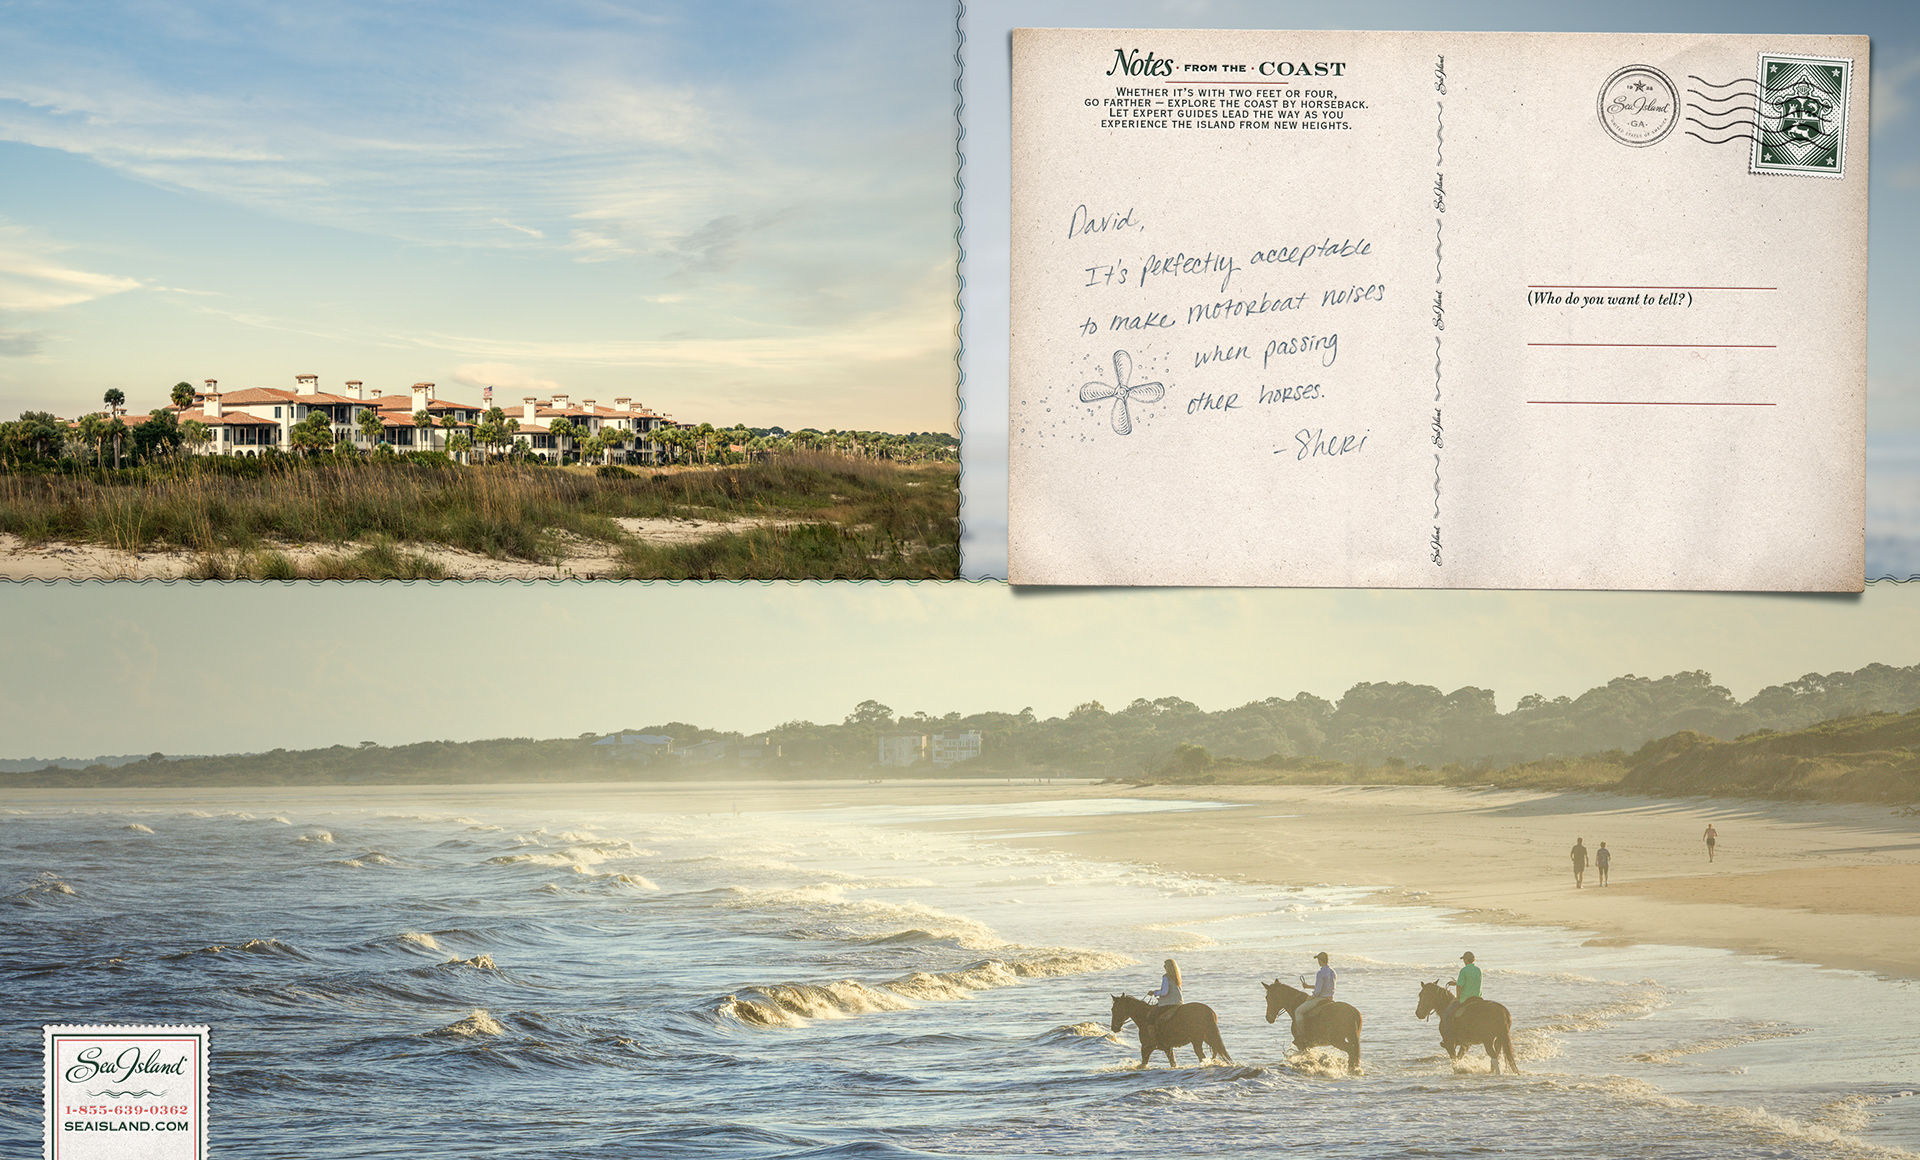 Notes · FROM THE · COAST
WHETHER IT'S WITH TWO FEET OR FOUR,
GO FARTHER — EXPLORE THE COAST BY HORSEBACK.
LET EXPERT GUIDES LEAD THE WAY AS YOU
EXPERIENCE THE ISLAND FROM NEW HEIGHTS.
David,
It's perfectly acceptable
to make motorboat noises
when passing
other horses.
- Sheri
Sea Island
Sea Island
Sea Island
Sea Island
Sea Island
1928
Sea Island
·GA·
UNITED STATES OF AMERICA
(Who do you want to tell?)
Sea Island
1-855-639-0362
SEAISLAND.COM